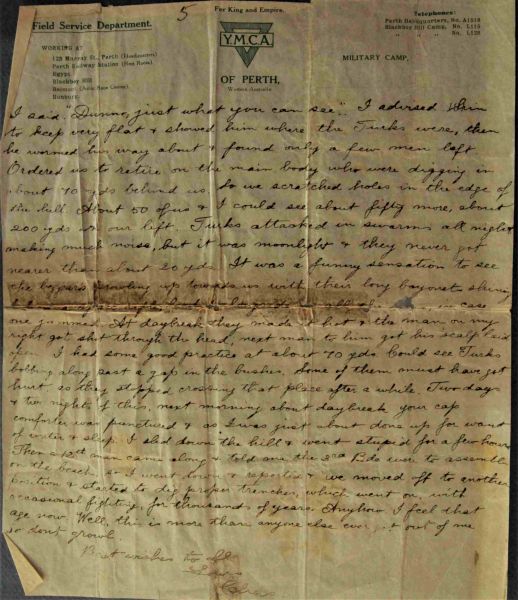 5
For King and Empire.
Field Service Department.
Telephones:
Perth Headquarters, No. A1818
Blackboy Hill Camp, No. L115
" " No. L128
Y.M.C.A.
WORKING AT
128 Murray St., Perth (Headquarters)
Perth Railway Station (Rest Room)
Egypt
Blackboy Hill
Belmont (Ascot Race Course)
Bunbury
MILITARY CAMP,
OF PERTH,
Western Australia
I said "Dunno, just what you can see". I advised him
to keep very flat & showed him where the Turks were, then
he wormed his way about & found only a few men left
Ordered us to retire on the main body who were digging in
about 70 yds behind us. So we scratched holes in the edge of
the hill. About 50 of us & I could see about fifty more, about
200 yds on our left. Turks attacked in swarms all night
making much noise, but it was moonlight & they never got
nearer than about 20 yds. It was a funny sensation to see
the beggars crawling up towards us with their long bayonets shining
in case
one jammed. At daybreak they made it hot & the man on my
right got shot through the head, next man to him got his scalp laid
open. I had some good practice at about 70 yds. Could see Turks
bobbing along past a gap in the bushes. Some of them must have got
hurt as they stopped crossing that place after a while. Two days
& two nights of this, next morning about daybreak your cap
comforter was punctured & as I was just about done up for want
of water & sleep. I slid down the hill & went stupid for a few hours
Then a 12th man came along & told me the 3rd Bde were to assemble
on the beach so I went down & reported & we moved off to another
position & started to dig proper trenches, which went on, with
occasional fighting, for thousands of years. Anyhow I feel that
age now. Well, this is more than anyone else ever got out of me
so don't growl.
Best wishes to all